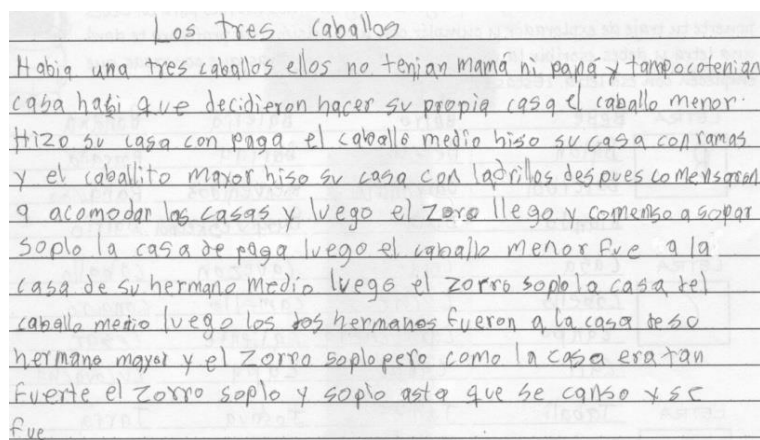 Los tres caballos
Habia una tres caballos ellos no tenian mamá ni papá y tampocotenian
casa hasi que decidieron hacer su propia casa el caballo menor.
Hizo su casa con paga el caballo medio hiso su casa con ramas
y el caballito mayor hiso su casa con ladrillos despues comensaron
a acomodar las casas y luego el zoro llego y comenso a sopar
soplo la casa de paga luego el caballo menor fue a la
casa de su hermano medio luego el zorro soplo la casa del
caballo medio luego los dos hermanos fueron a la casa de so
hermano mayor y el zorro soplo pero como la casa era tan
fuerte el zorro soplo y soplo asta que se canso y se
fue